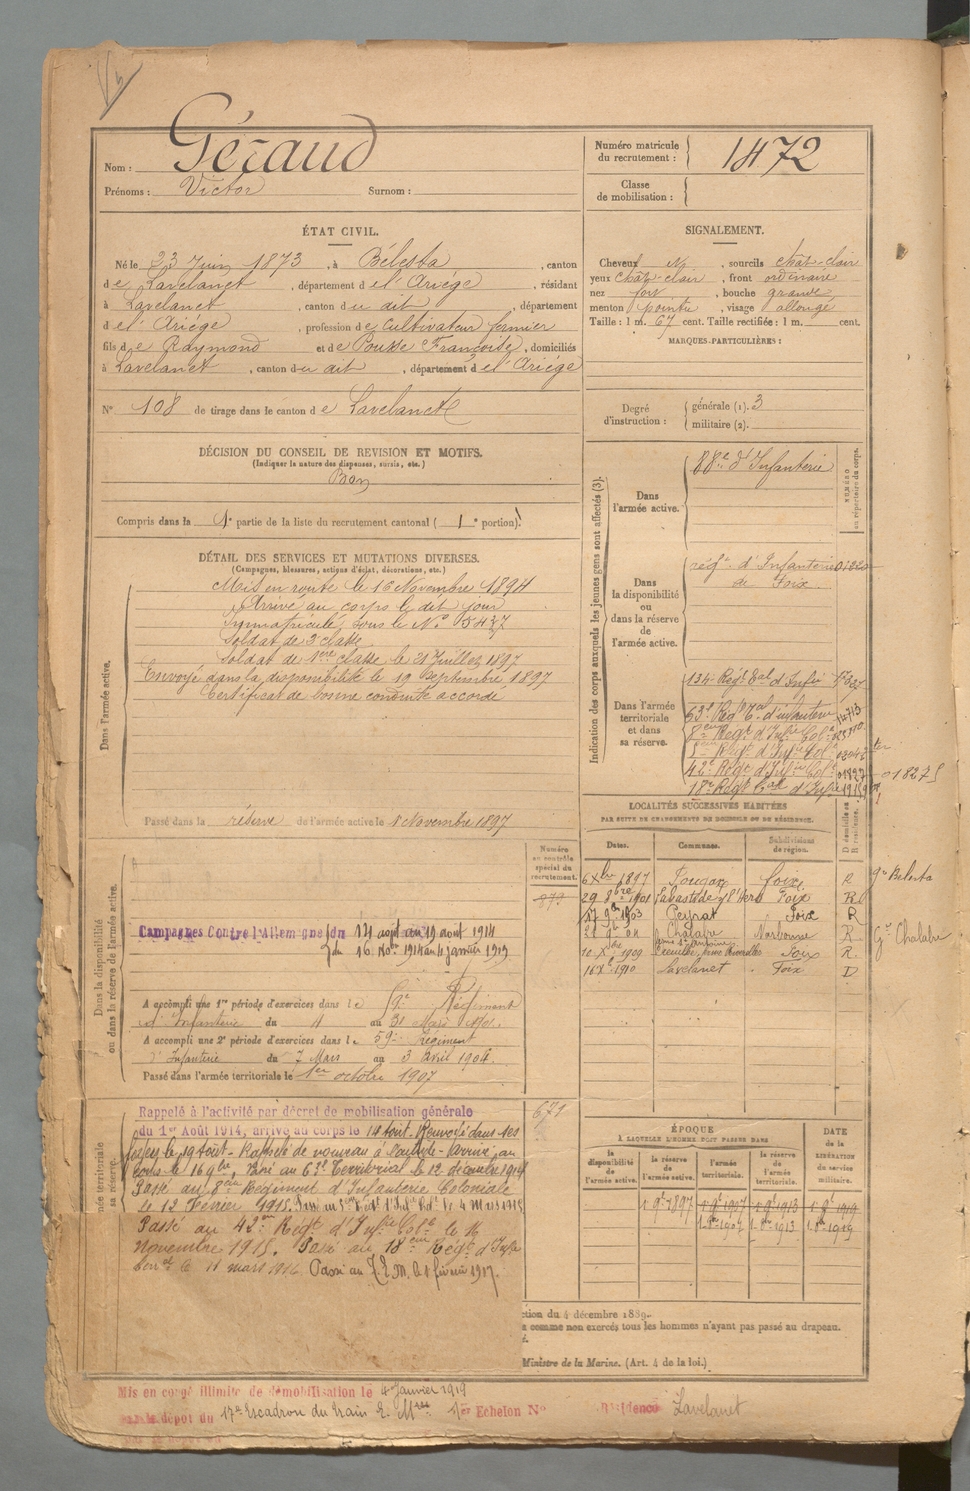 Nom : Géraud
Prénoms : Victor Surnom :
Numéro matricule du recrutement : 1472
Classe de mobilisation :
ÉTAT CIVIL.
Né le 23 Juin 1873, à Bélesta, canton
de Lavelanet, département de l'Ariège, résidant
à Lavelanet, canton du dit, département
de l'Ariège, profession de Cultivateur fermier
fils de Raymond et de Pousse Françoise, domiciliés
à Lavelanet, canton du dit, département de l'Ariège
N° 108 de tirage dans le canton de Lavelanet
SIGNALEMENT.
Cheveux N, sourcils chât-clair
yeux chât-clair, front ordinaire
nez fort, bouche grande
menton pointu, visage allongé
Taille : 1 m. 67 cent. Taille rectifiée : 1 m. cent.
MARQUES PARTICULIÈRES :
Degré d'instruction : générale (1). 3
militaire (2).
DÉCISION DU CONSEIL DE REVISION ET MOTIFS.
(Indiquer la nature des dispenses, sursis, etc.)
Bon
Compris dans la 1e partie de la liste du recrutement cantonal ( 1e portion).
DÉTAIL DES SERVICES ET MUTATIONS DIVERSES.
(Campagnes, blessures, actions d'éclat, décorations, etc.)
Dans l'armée active.
Mis en route le 16 Novembre 1894
Arrivé au corps le dit jour
Immatriculé sous le N° 5437
Soldat de 2e classe
Soldat de 1ere classe le 21 Juillet 1897
Envoyé dans la disponibilité le 19 Septembre 1897
Certificat de bonne conduite accordé
Passé dans la réserve de l'armée active le 1 Novembre 1897
Indication des corps auxquels les jeunes gens sont affectés (3).
NUMÉRO au répertoire du corps.
Dans l'armée active.
88e d'Infanterie
Dans la disponibilité ou dans la réserve de l'armée active.
régt d'Infanterie
de Foix
Dans l'armée territoriale et dans sa réserve.
134 Régt tal d'Infie
63e Régt Tal d'infanterie
8eme Régt d'Infie Colle
5eme Régt d'Infie Colle
42e Régt d'Infie Colle 01827S
18e Régt tal d'Infie
LOCALITÉS SUCCESSIVES HABITÉES
PAR SUITE DE CHANGEMENTS DE DOMICILE OU DE RÉSIDENCE.
Dates. Communes. Subdivisions de région. D domicile ou R résidence.
6 Xbre 1897 Fougax Foix R Gie Belesta
29 8bre 1901 Labastide s/ l'Hers Foix R
17 9bre 1903 Peyrat Foix R
Chalabre Narbonne R Gie Chalabre
10 Xbre 1909 Foix R.
16 Xbre 1910 Lavelanet Foix D
Numéro au contrôle spécial du recrutement.
973
Dans la disponibilité ou dans la réserve de l'armée active.
Campagnes Contre l'Allemagne du 14 août au 19 août 1914
du 16 Nov. 1914 au 4 janvier 1919
A accompli une 1re période d'exercices dans le 59e Régiment
d'Infanterie du 4 au 31 Mars 1901.
A accompli une 2e période d'exercices dans le 59e Régiment
d'Infanterie du 7 Mars au 3 Avril 1904.
Passé dans l'armée territoriale le 1er octobre 1907
671
Rappelé à l'activité par décret de mobilisation générale
du 1er Août 1914, arrivé au corps le 14 août. Renvoyé dans ses
foyers le 19 août - Rappelé de nouveau à l'activité - Arrivé au
corps le 16 9bre, Passé au 63e Territorial le 12 décembre 1914
Passé au 8eme Régiment d'Infanterie Coloniale
le 12 Février 1915. Passé au 5eme le 4 Mars 1915
Passé au 42eme Régt d'Infie Colle le 16
Novembre 1915. Passé au 18eme Régt d'Infa
le 11 mars 1916 Passé au T.E.M. le 1 février 1917.
ÉPOQUE
À LAQUELLE L'HOMME DOIT PASSER DANS
DATE de la LIBÉRATION du service militaire.
la disponibilité de l'armée active. la réserve de l'armée active. l'armée territoriale. la réserve de l'armée territoriale.
1. 9e 1897 1. 9e 1907 1. 9e 1913 1. 9e 1919
1. 8e 1907 1. 8e 1913 1. 8e 1919
ction du 4 décembre 1889.
comme non exercés tous les hommes n'ayant pas passé au drapeau.
Ministre de la Marine. (Art. 4 de la loi.)
Mis en congé illimité de démobilisation le 4 Janvier 1919
par le dépôt du 17e Escadron du Train 1er Echelon N° Résidence Lavelanet